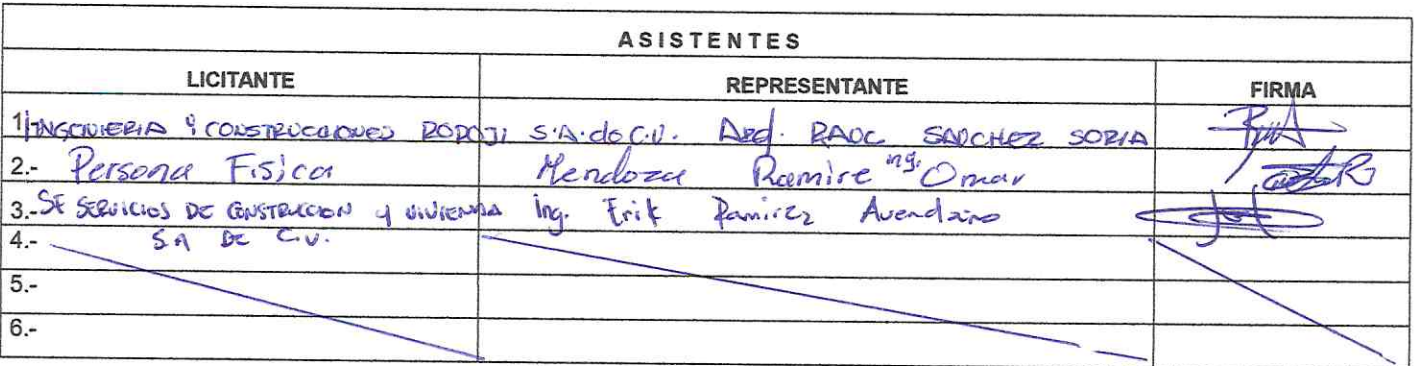 ASISTENTES
LICITANTE REPRESENTANTE FIRMA
1 INGENIERIA Y CONSTRUCCIONES RODOJI S.A. de C.V. Arq. RAUL SANCHEZ SORIA
2.- Persona Fisica Mendoza Ramire Ing. Omar
3.- SE SERVICIOS DE CONSTRUCCION Y VIVIENDA Ing. Erik Ramirez Avendaño
4.- SA DE C.V.
5.-
6.-